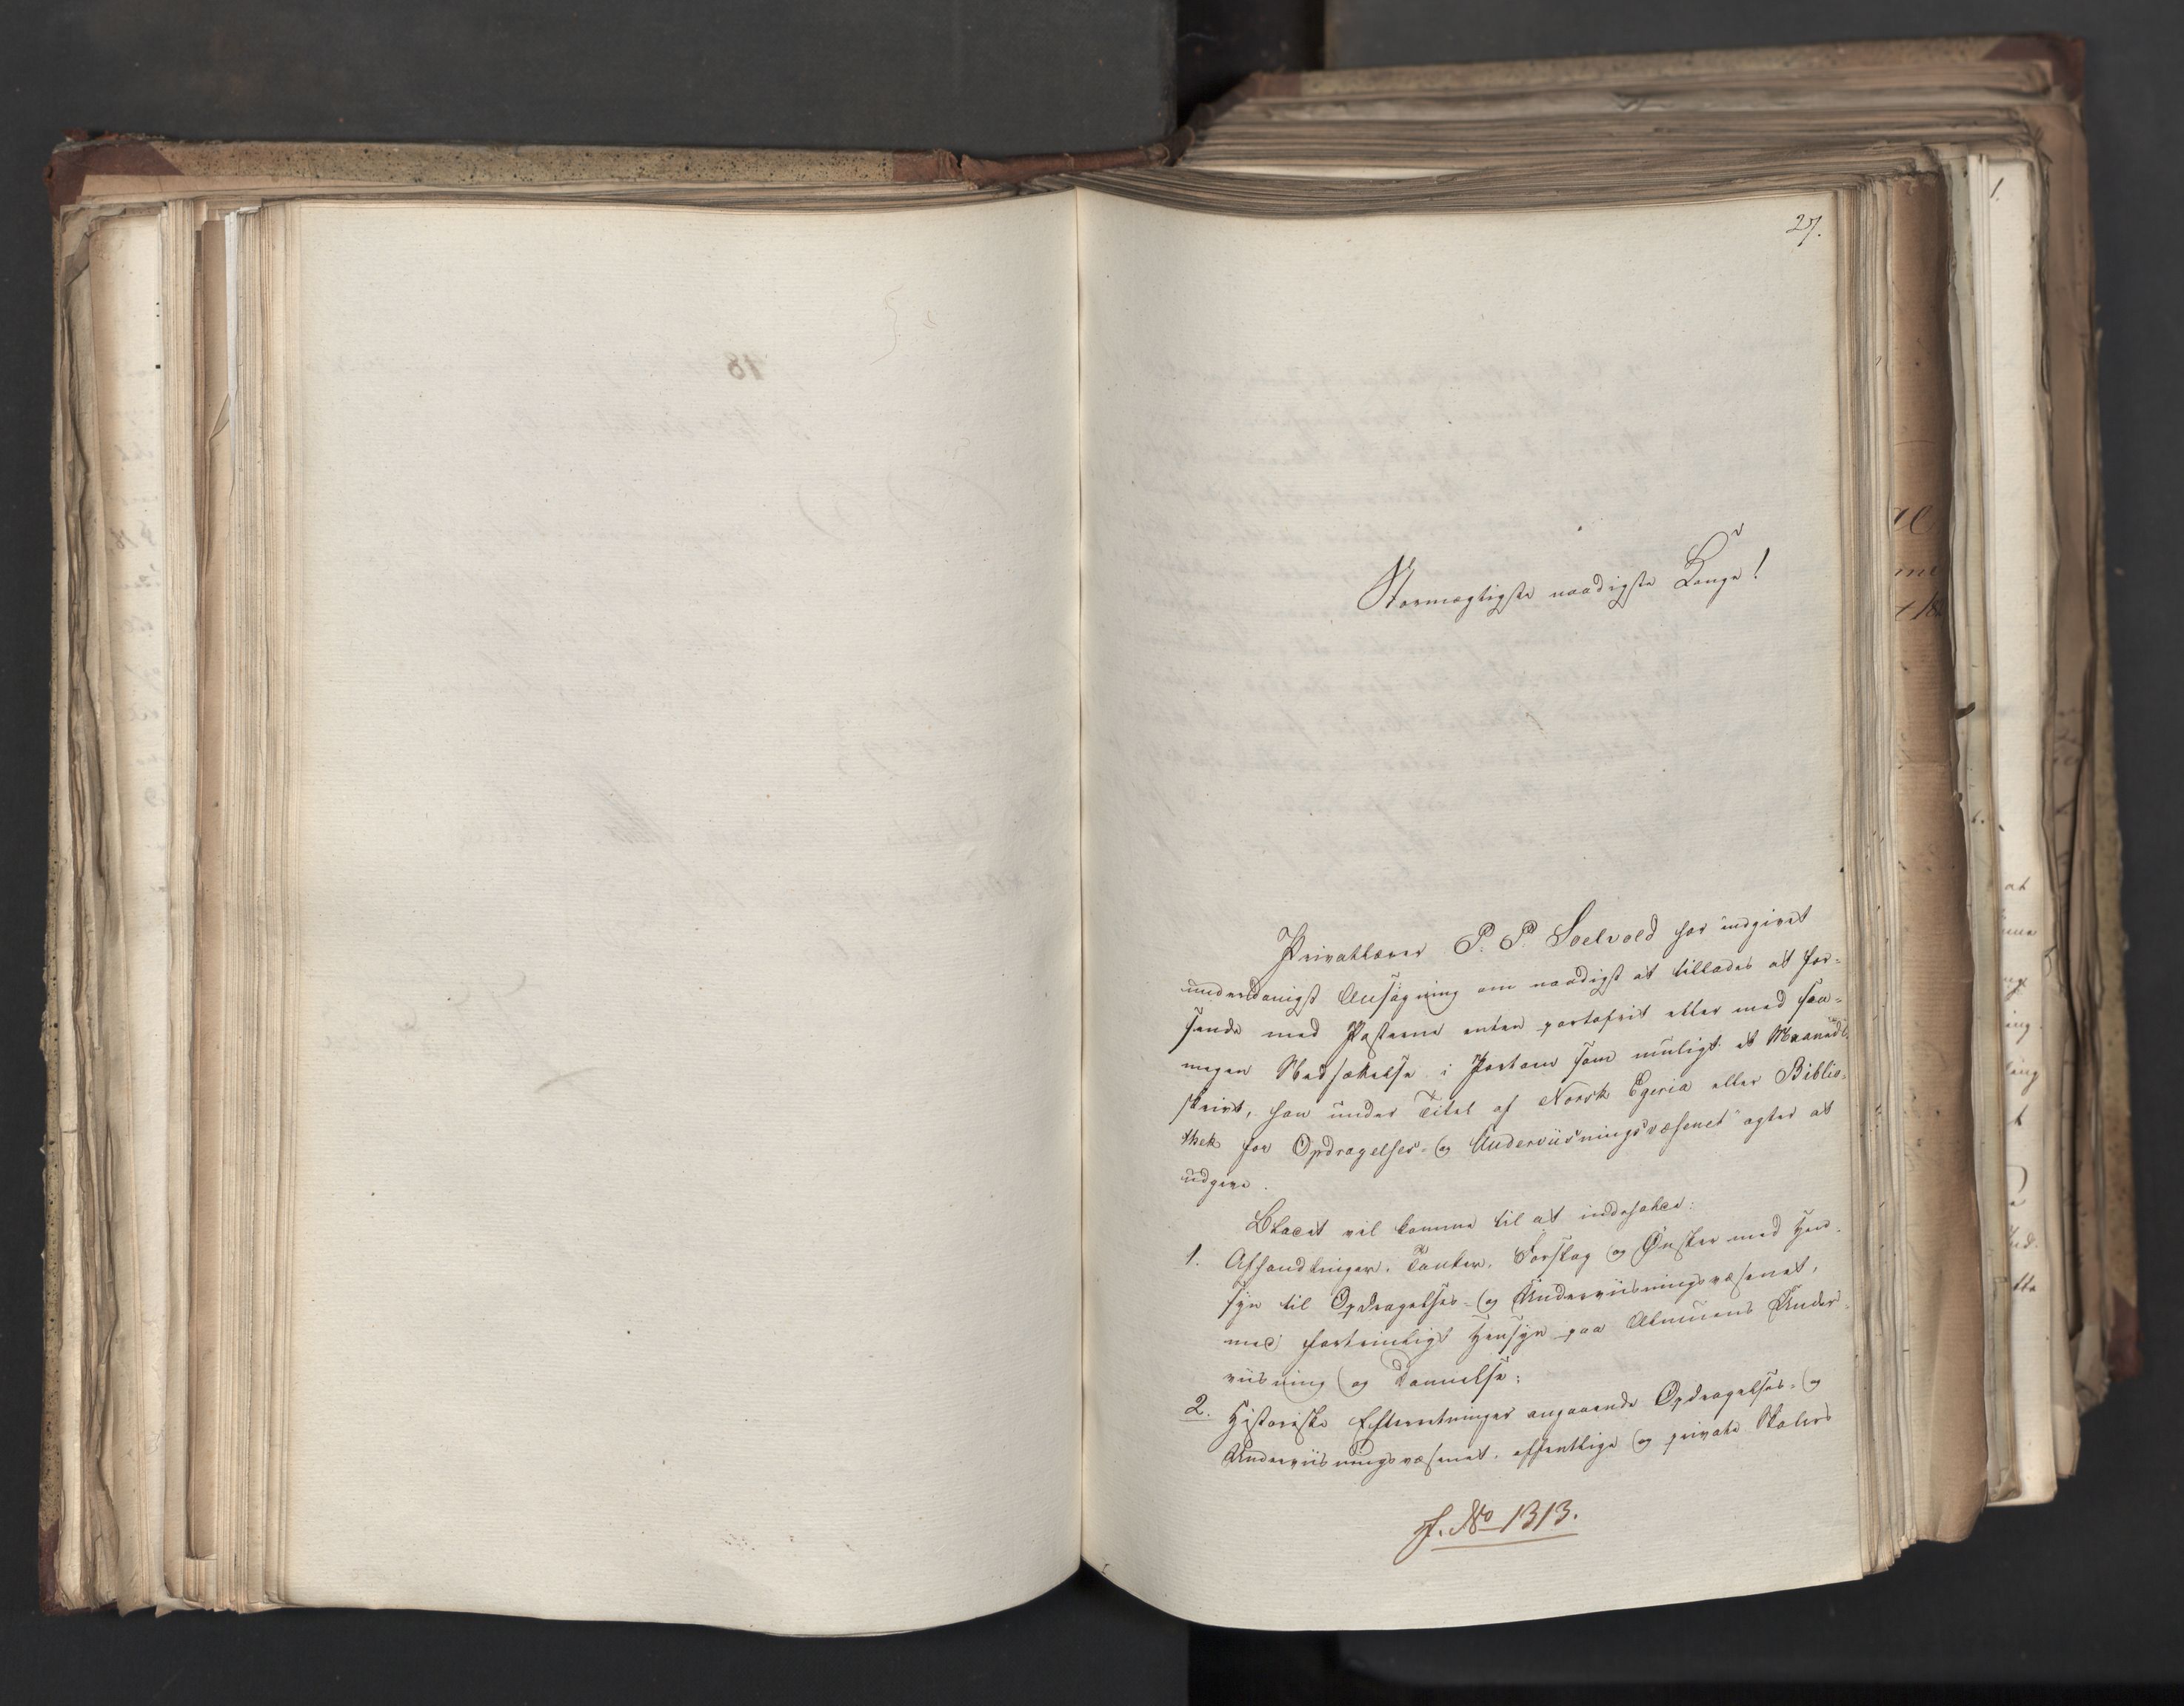 27.
Stormægtigste naadigste Konge!
Privatlærer P. P. Soelvold har indgivet
underdanigst Ansøgning om naadigst at tillades at for-
sende med Posterne enten portofrit eller med saa-
megen Nedsættelse i Portoen som muligt et Maaneds-
skrivt, han under Titel af Norsk Egeria eller Biblio-
thek for Opdragelses- og Underviisningsvæsenet" agter at
udgive.
Bladet vil komme til at indeholde:
1. Afhandlinger, Tanker, Forslag og Ønsker med Hen-
syn til Opdragelses- og Underviisningsvæsenet,
med fortrinligt Hensyn paa Almuens Under-
viisning og Dannelse;
2. Historiske Efterretninger angaaende Opdragelses- og
Underviisningsvæsenet, offentlige og private Skolers
J. No 1313.